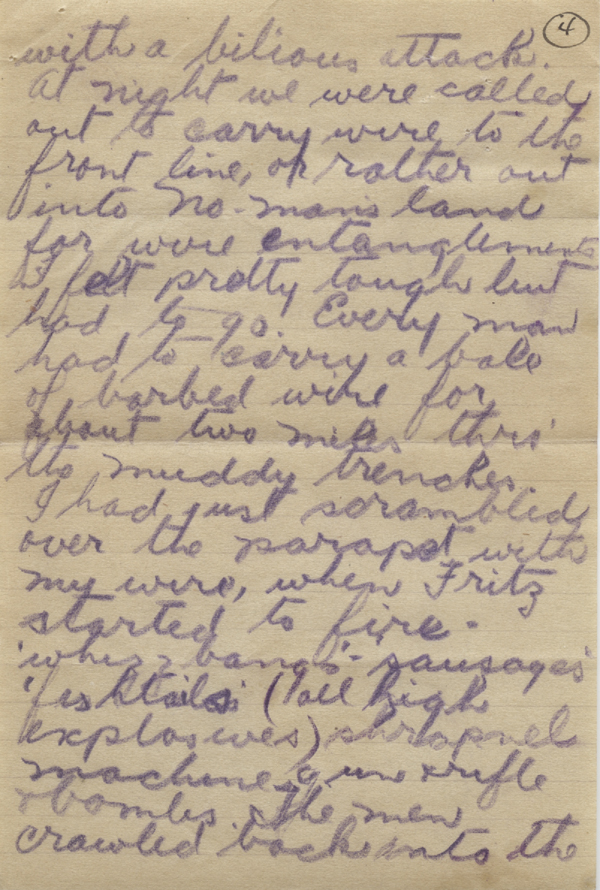 4
with a bilious attack.
At night we were called
out to carry wire to the
front line, or rather out
into No-man's land
for wire entanglements
I felt pretty tough but
had to go. Every man
had to carry a bale
of barbed wire for
about two miles thro'
the muddy trenches.
I had just scrambled
over the parapet with
my wire, when Fritz
started to fire -
'whizz bangs'- sausages'
'fishtails' (all high
explosives) shrapnel
machine gun & rifle
& bombs. The men
crawled back into the